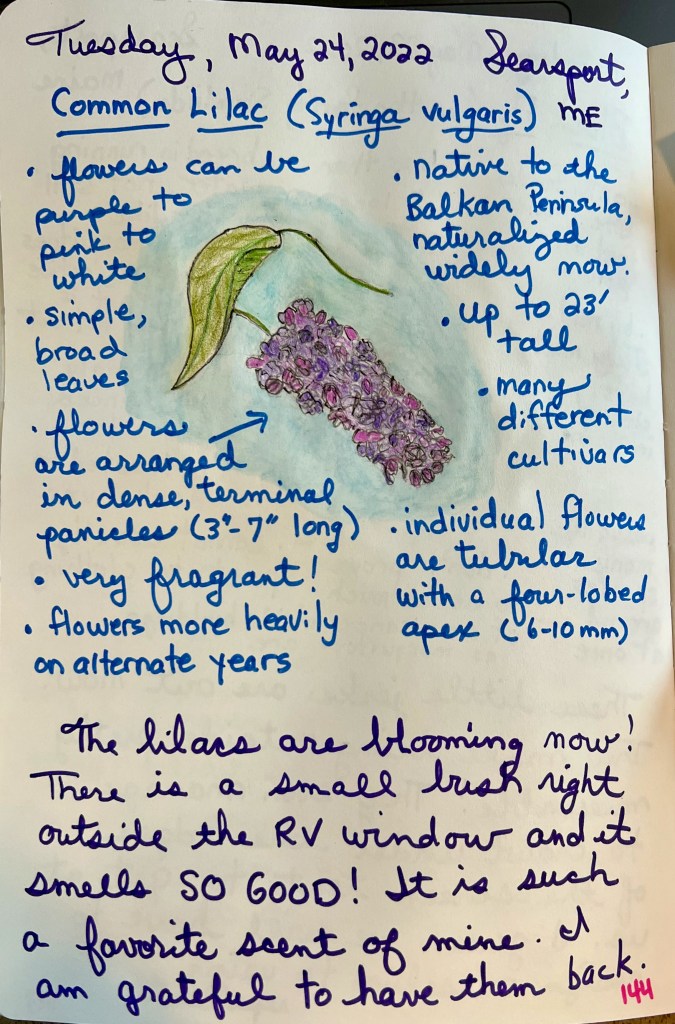 Tuesday, May 24, 2022 Searsport, ME
Common Lilac (Syringa vulgaris)
• flowers can be
purple to
pink to
white
• simple,
broad
leaves
• flowers
are arranged
in dense, terminal
panicles (3"-7" long)
• very fragrant!
• flowers more heavily
on alternate years
• native to the
Balkan Peninsula,
naturalized
widely now.
• up to 23'
tall
• many
different
cultivars
• individual flowers
are tubular
with a four-lobed
apex (6-10 mm)
The lilacs are blooming now!
There is a small bush right
outside the RV window and it
smells SO GOOD! It is such
a favorite scent of mine. I
am grateful to have them back.
144